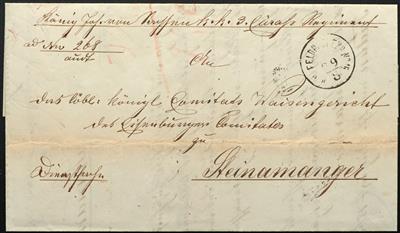 König Joh. von Sachsen k. k. 3. Cürass Regiment
ad Nro 268
An
das löbl. königl. Comitats Waisengericht
des Eisenburger Comitates
zu
Steinamanger
Dienstsache
FELDPOST
9
8